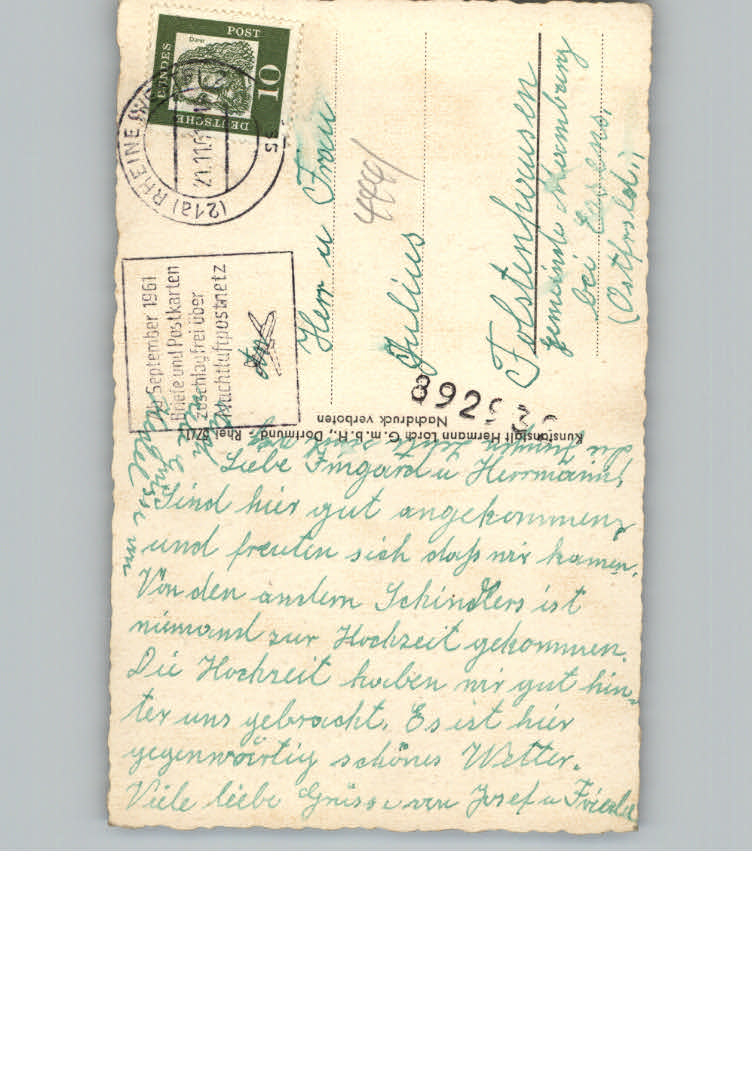 Liebe Irmgard u Herrmann!
Sind hier gut angekommen,
und freuten sich daß wir kamen.
Von den andern Schindlers ist
niemand zur Hochzeit gekommen.
Die Hochzeit haben wir gut hin-
ter uns gebracht. Es ist hier
gegenwärtig schönes Wetter.
Viele liebe Grüsse von Josef u Frieda
Herr u Frau
Julius
Folstenhausen
gemeinde
bei Esens,
(Ostfrsld.)
POST
10
DEUTSCHE
BUNDES
(21a) RHEINE
21.11.61
September 1961
Briefe und Postkarten
zuschlagfrei über
Nachtluftpostnetz
Kunstanstalt Hermann Lorch G.m.b.H., Dortmund - Rhei
Nachdruck verboten